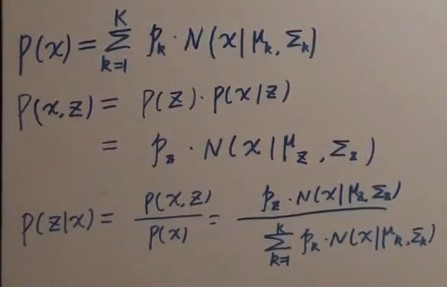 p(x) = Σ_{k=1}^{K} p_k · N(x|μ_k, Σ_k)
p(x,z) = p(z) · p(x|z)
= p_z · N(x|μ_z, Σ_z)
p(z|x) = p(x,z) / p(x) = p_z · N(x|μ_z, Σ_z) / Σ_{k=1}^{K} p_k · N(x|μ_k, Σ_k)